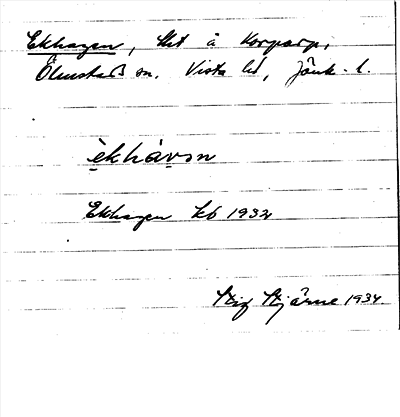 Ekhagen, lht å Korparp,
Ölmstads sn. Vista hd, Jönk. l.
èkhàvən
Ekhagen kb 1932
Stig Stjärne 1934.